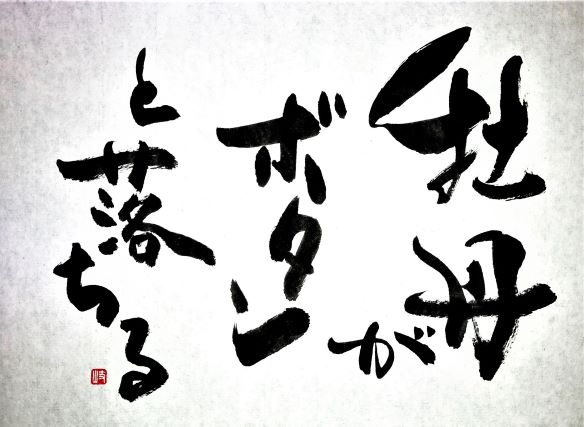 牡丹が
ボタン
と落ちる